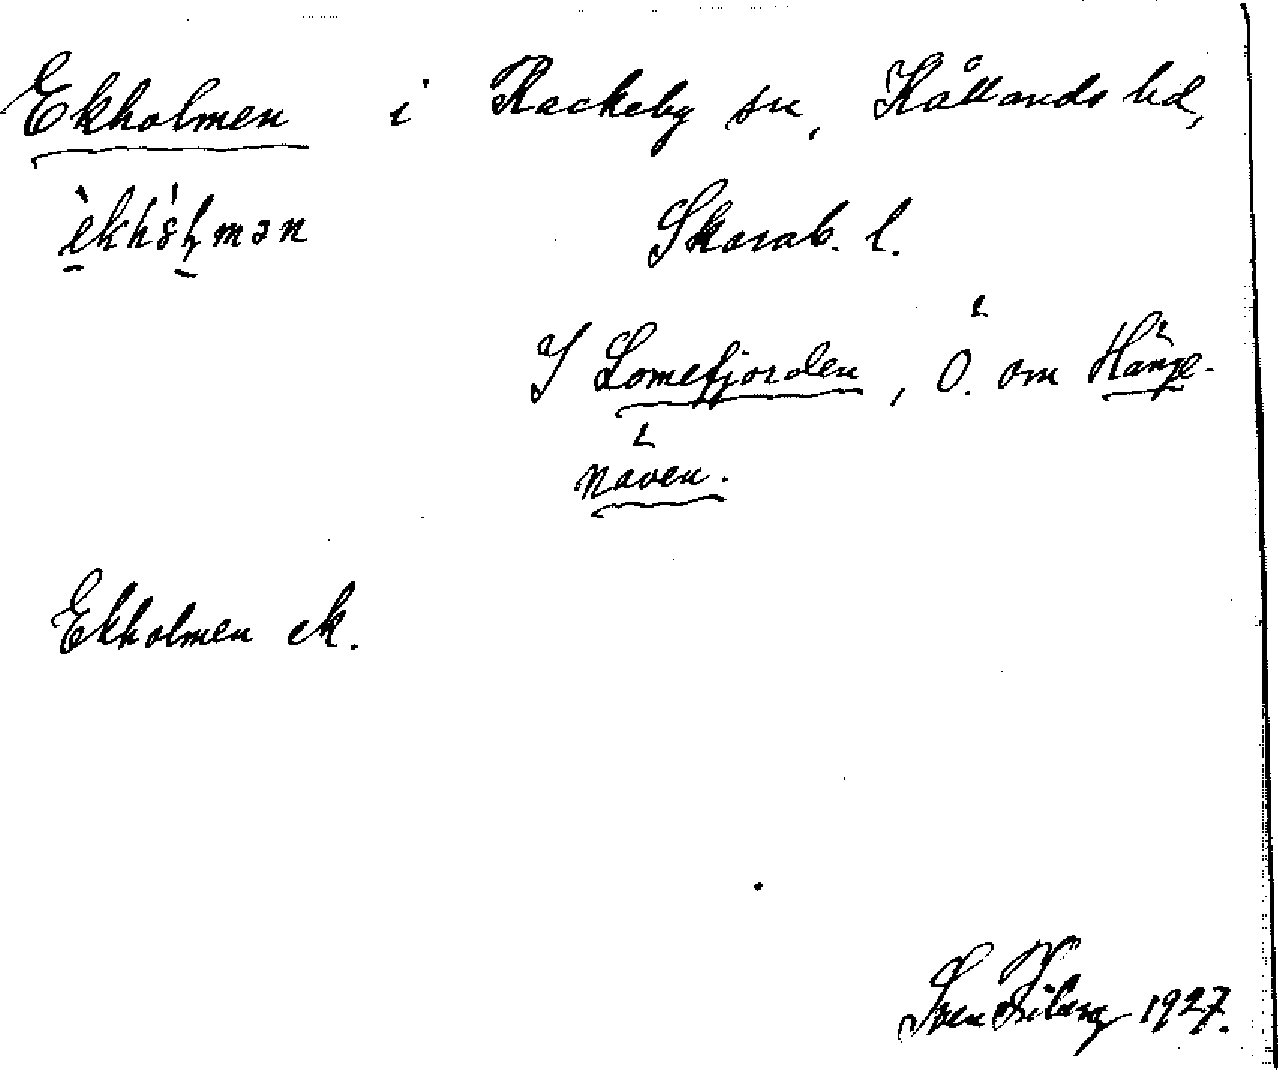 Ekholmen i Rackeby sn, Kållands hd,
Skarab. l.
I Lomefjorden, Ö. om Hänge-
näven.
Ekholmen ek.
Sven Friberg 1927.